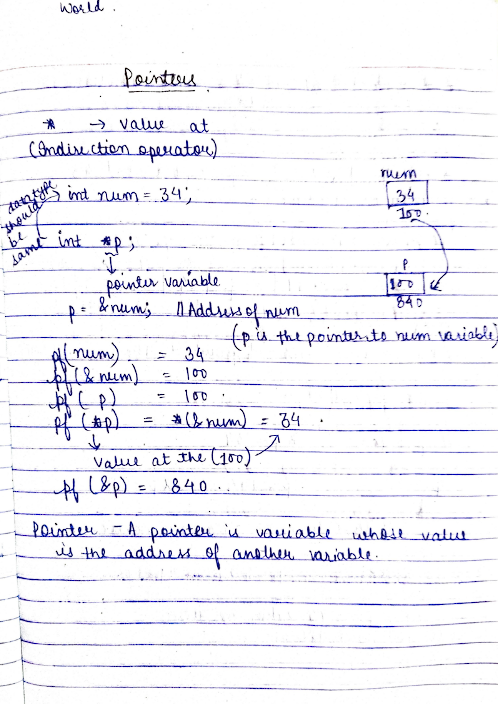 World.
Pointers
* → value at
(Indirection operator)
num
34
100
data type should be same
int num = 34;
int *p;
pointer variable
p
100
840
p = &num; // Address of num
(p is the pointer to num variable)
pf(num) = 34
pf(&num) = 100
pf(p) = 100.
pf(*p) = *(&num) = 34.
value at the (100)
pf(&p) = 840.
Pointer – A pointer is variable whose value
is the address of another variable.